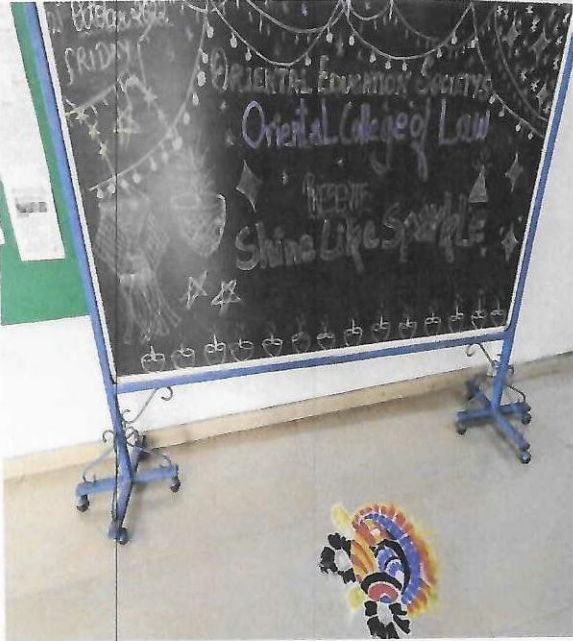 FRIDAY
ORIENTAL EDUCATION SOCIETYS
Oriental College of Law
Shine Like Sparkle